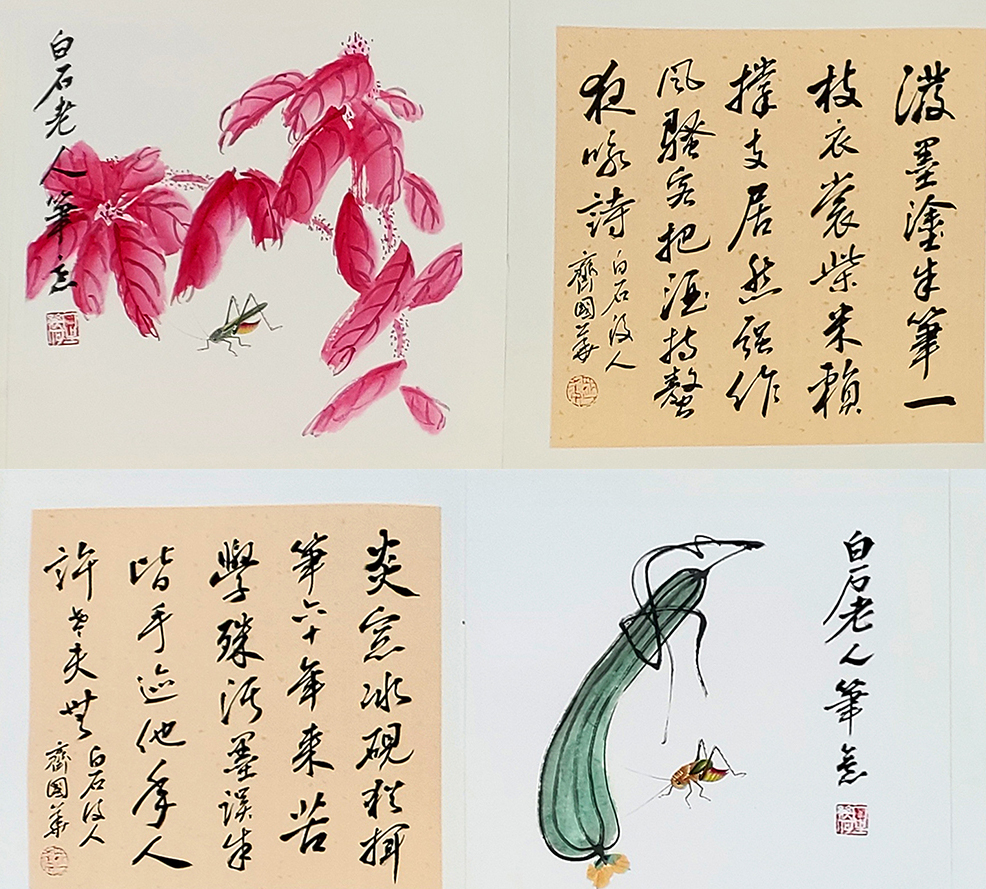 白石老人筆意
潑墨塗朱筆一
枝衣裳柴米賴
撐支居然强作
風騷客把酒持螯
夜咏詩
白石後人
齊國華
炎窓冰硯猶揮
筆六十年來苦
學殊污墨誤朱
皆手迹他年人
許老夫無
白石後人
齊國華
白石老人筆意